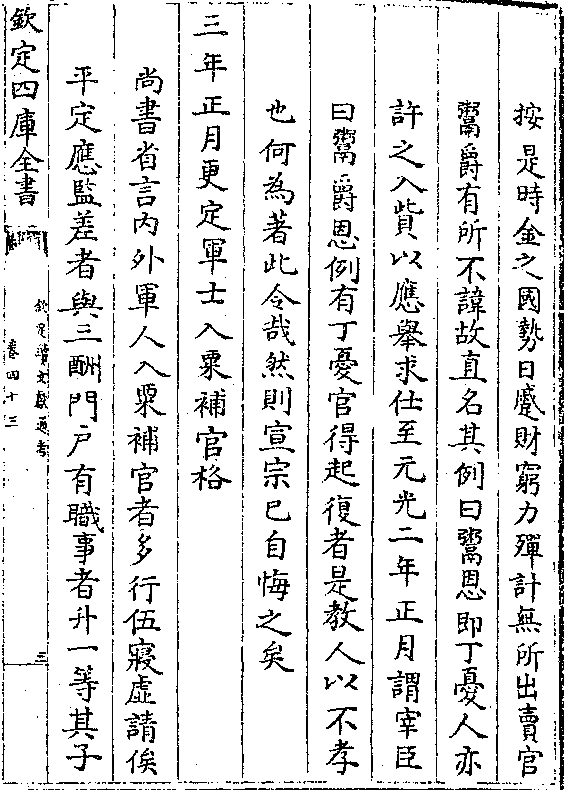 按是時金之國勢日蹙財窮力殫計無所出賣官
鬻爵有所不諱故直名其例曰鬻恩即丁憂人亦
許之入貲以應舉求仕至元光二年正月謂宰臣
曰鬻爵恩例有丁憂官得起復者是教人以不孝
也何為著此令哉然則宣宗已自悔之矣
三年正月更定軍士入粟補官格
尚書省言内外軍人入粟補官者多行伍寖虛請俟
平定應監差者與三酬門戶有職事者升一等其子
欽定四庫全書
欽定續文獻通考
卷四十三
三